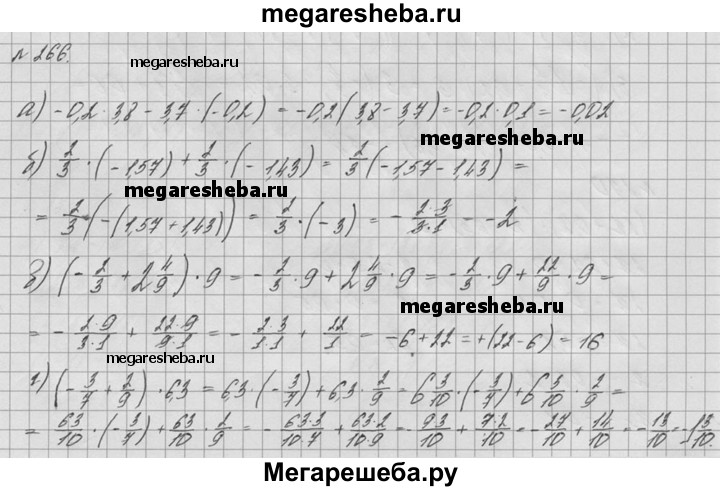 megaresheba.ru
№ 266.
megaresheba.ru
а) -0,2 · 3,8 - 3,7 · (-0,2) = -0,2(3,8 - 3,7) = -0,2 · 0,1 = -0,02
megaresheba.ru
б) 2/3 · (-1,57) + 2/3 · (-1,43) = 2/3 (-1,57 - 1,43) =
megaresheba.ru
= 2/3 (-(1,57 + 1,43)) = 2/3 · (-3) = - 2·3/3·1 = -2
в) (- 2/3 + 2 4/9) · 9 = - 2/3 · 9 + 2 4/9 · 9 = - 2/3 · 9 + 22/9 · 9 =
megaresheba.ru
= - 2·9/3·1 + 22·9/9·1 = - 2·3/1·1 + 22/1 = -6 + 22 = +(22 - 6) = 16
megaresheba.ru
г) (- 3/7 + 2/9) · 6,3 = 6,3 · (- 3/7) + 6,3 · 2/9 = 6 3/10 · (- 3/7) + 6 3/10 · 2/9 =
= 63/10 · (- 3/7) + 63/10 · 2/9 = - 63·3/10·7 + 63·2/10·9 = - 9·3/10 + 7·2/10 = - 27/10 + 14/10 = - 13/10 = -1 3/10.
megaresheba.ru
Мегарешеба.ру